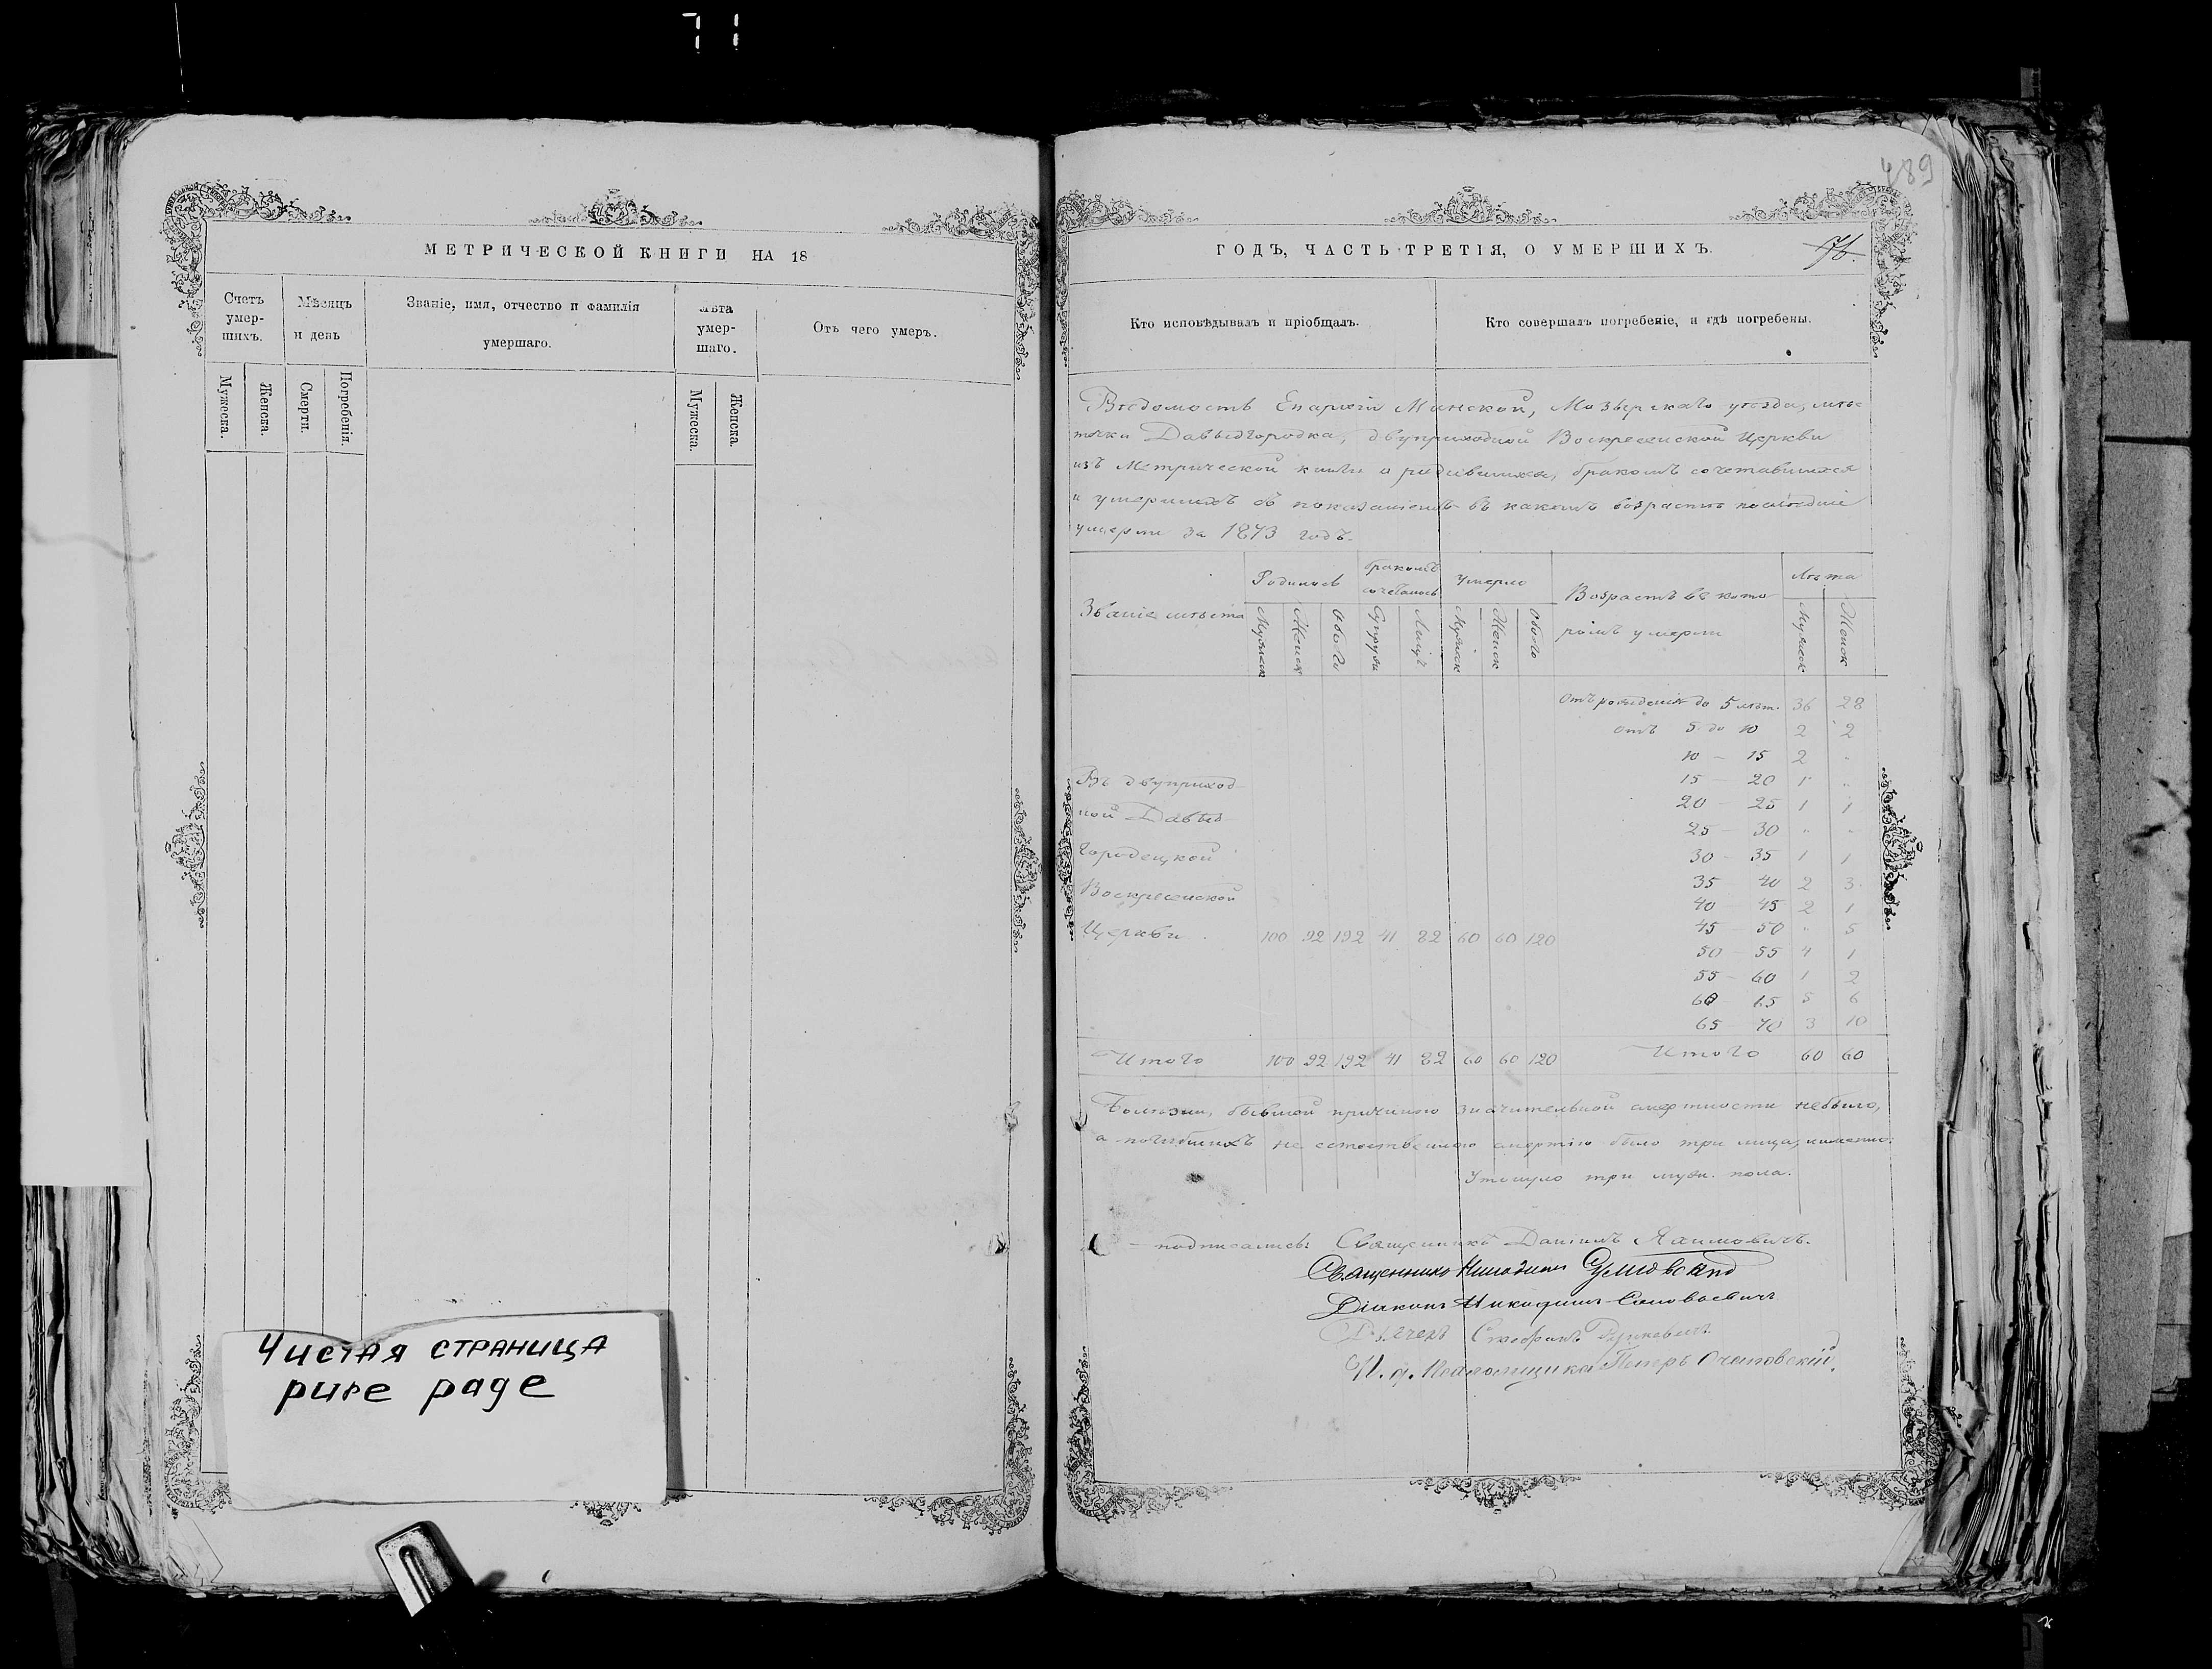 71
МЕТРИЧЕСКОЙ КНИГИ НА 18
Счетъ умер-шихъ.
Мѣсяцъ и день
Званіе, имя, отчество и фамилія умершаго.
Лѣта умер-шаго.
Отъ чего умеръ.
Мужеска. Женска. Смерти. Погребенія. Мужеска. Женска.
Чистая страница
pure page
489
ГОДЪ, ЧАСТЬ ТРЕТІЯ, О УМЕРШИХЪ.
Кто исповѣдывалъ и пріобщалъ.
Кто совершалъ погребеніе, и гдѣ погребены.
Вѣдомость Епархіи Минской, Мозырскаго уѣзда, мѣс-
течка Давыдгородка, двуприходной Воскресенской Церкви
изъ Метрической книги о родившихся, бракомъ сочетавшихся
и умершихъ съ показаніемъ въ какомъ возрастѣ послѣдніе
умерли за 1873 годъ.
Званіе мѣста
Родилось
бракомъ сочеталось
Умерло
Возрастъ въ кото-
ромъ умерли
Лѣта
Мужеск Женск Обоего Супруж Лицъ Мужеск Женск Обоего Мужеск Женск
Отъ рожденія до 5 лѣт. 36 28
отъ 5 до 10 2 2
10 – 15 2 „
15 – 20 1 „
20 – 25 1 1
25 – 30 „ „
30 – 35 1 1
35 40 2 3
40 – 45 2 1
45 – 50 „ 5
50 – 55 4 1
55 – 60 1 2
60 – 65 5 6
65 – 70 3 10
Въ двуприход-
ной Давыд-
городецкой
Воскресенской
Церкви 100 92 192 41 82 60 60 120
Итого 100 92 192 41 82 60 60 120 Итого 60 60
Болѣзни, бывшей причиною значительной смертности небыло,
а погибшихъ не естественною смертію было три лица, именно:
Утонуло три муж. пола.
подписались: Священникъ Даніилъ Якимовичъ.
Священникъ
Діаконъ Никодимъ
Дьячекъ Стефанъ
И. д. Псаломщика Петръ